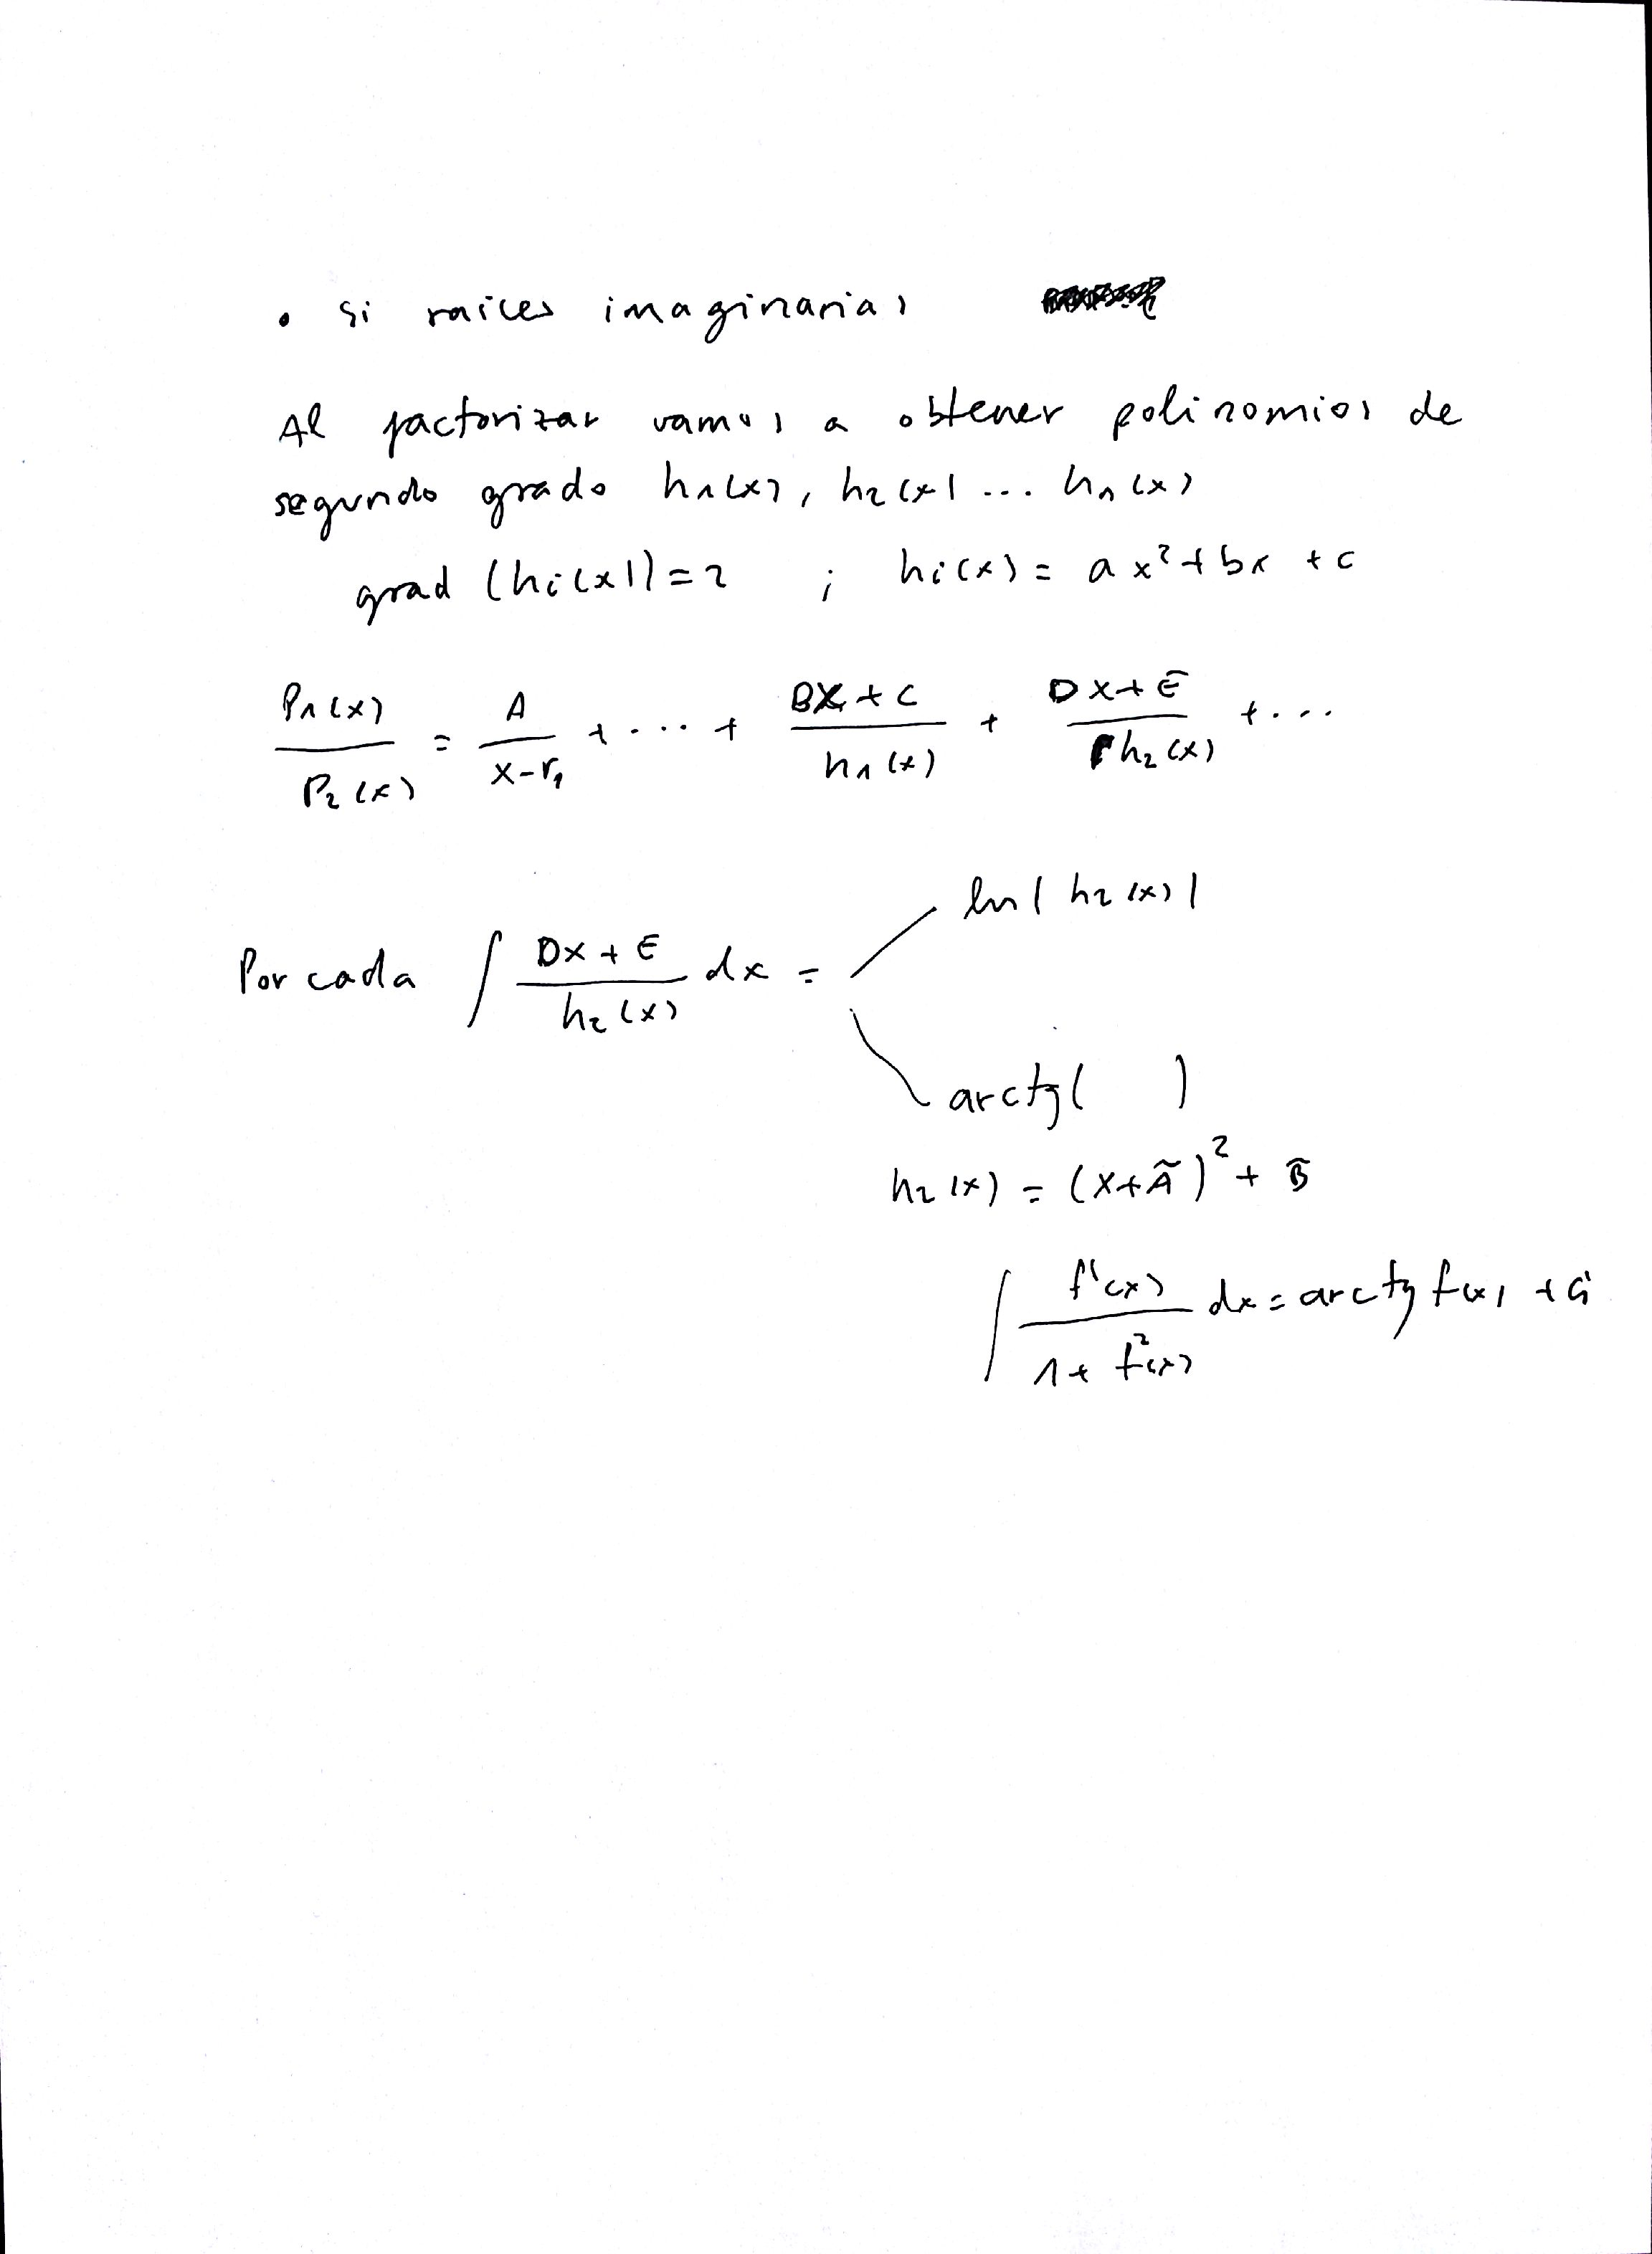 • Si raíces imaginarias
Al factorizar vamos a obtener polinomios de
segundo grado h1(x), h2(x) ... hn(x)
grad (hi(x)) = 2 ; hi(x) = ax² + bx + c
P1(x)/P2(x) = A/(x-r1) + ... + (Bx + C)/h1(x) + (Dx + E)/h2(x) + ...
Por cada ∫ (Dx + E)/h2(x) dx =
ln | h2(x) |
arctg( )
h2(x) = (x+Ã)² + B̃
∫ f'(x)/(1 + f²(x)) dx = arctg f(x) + G